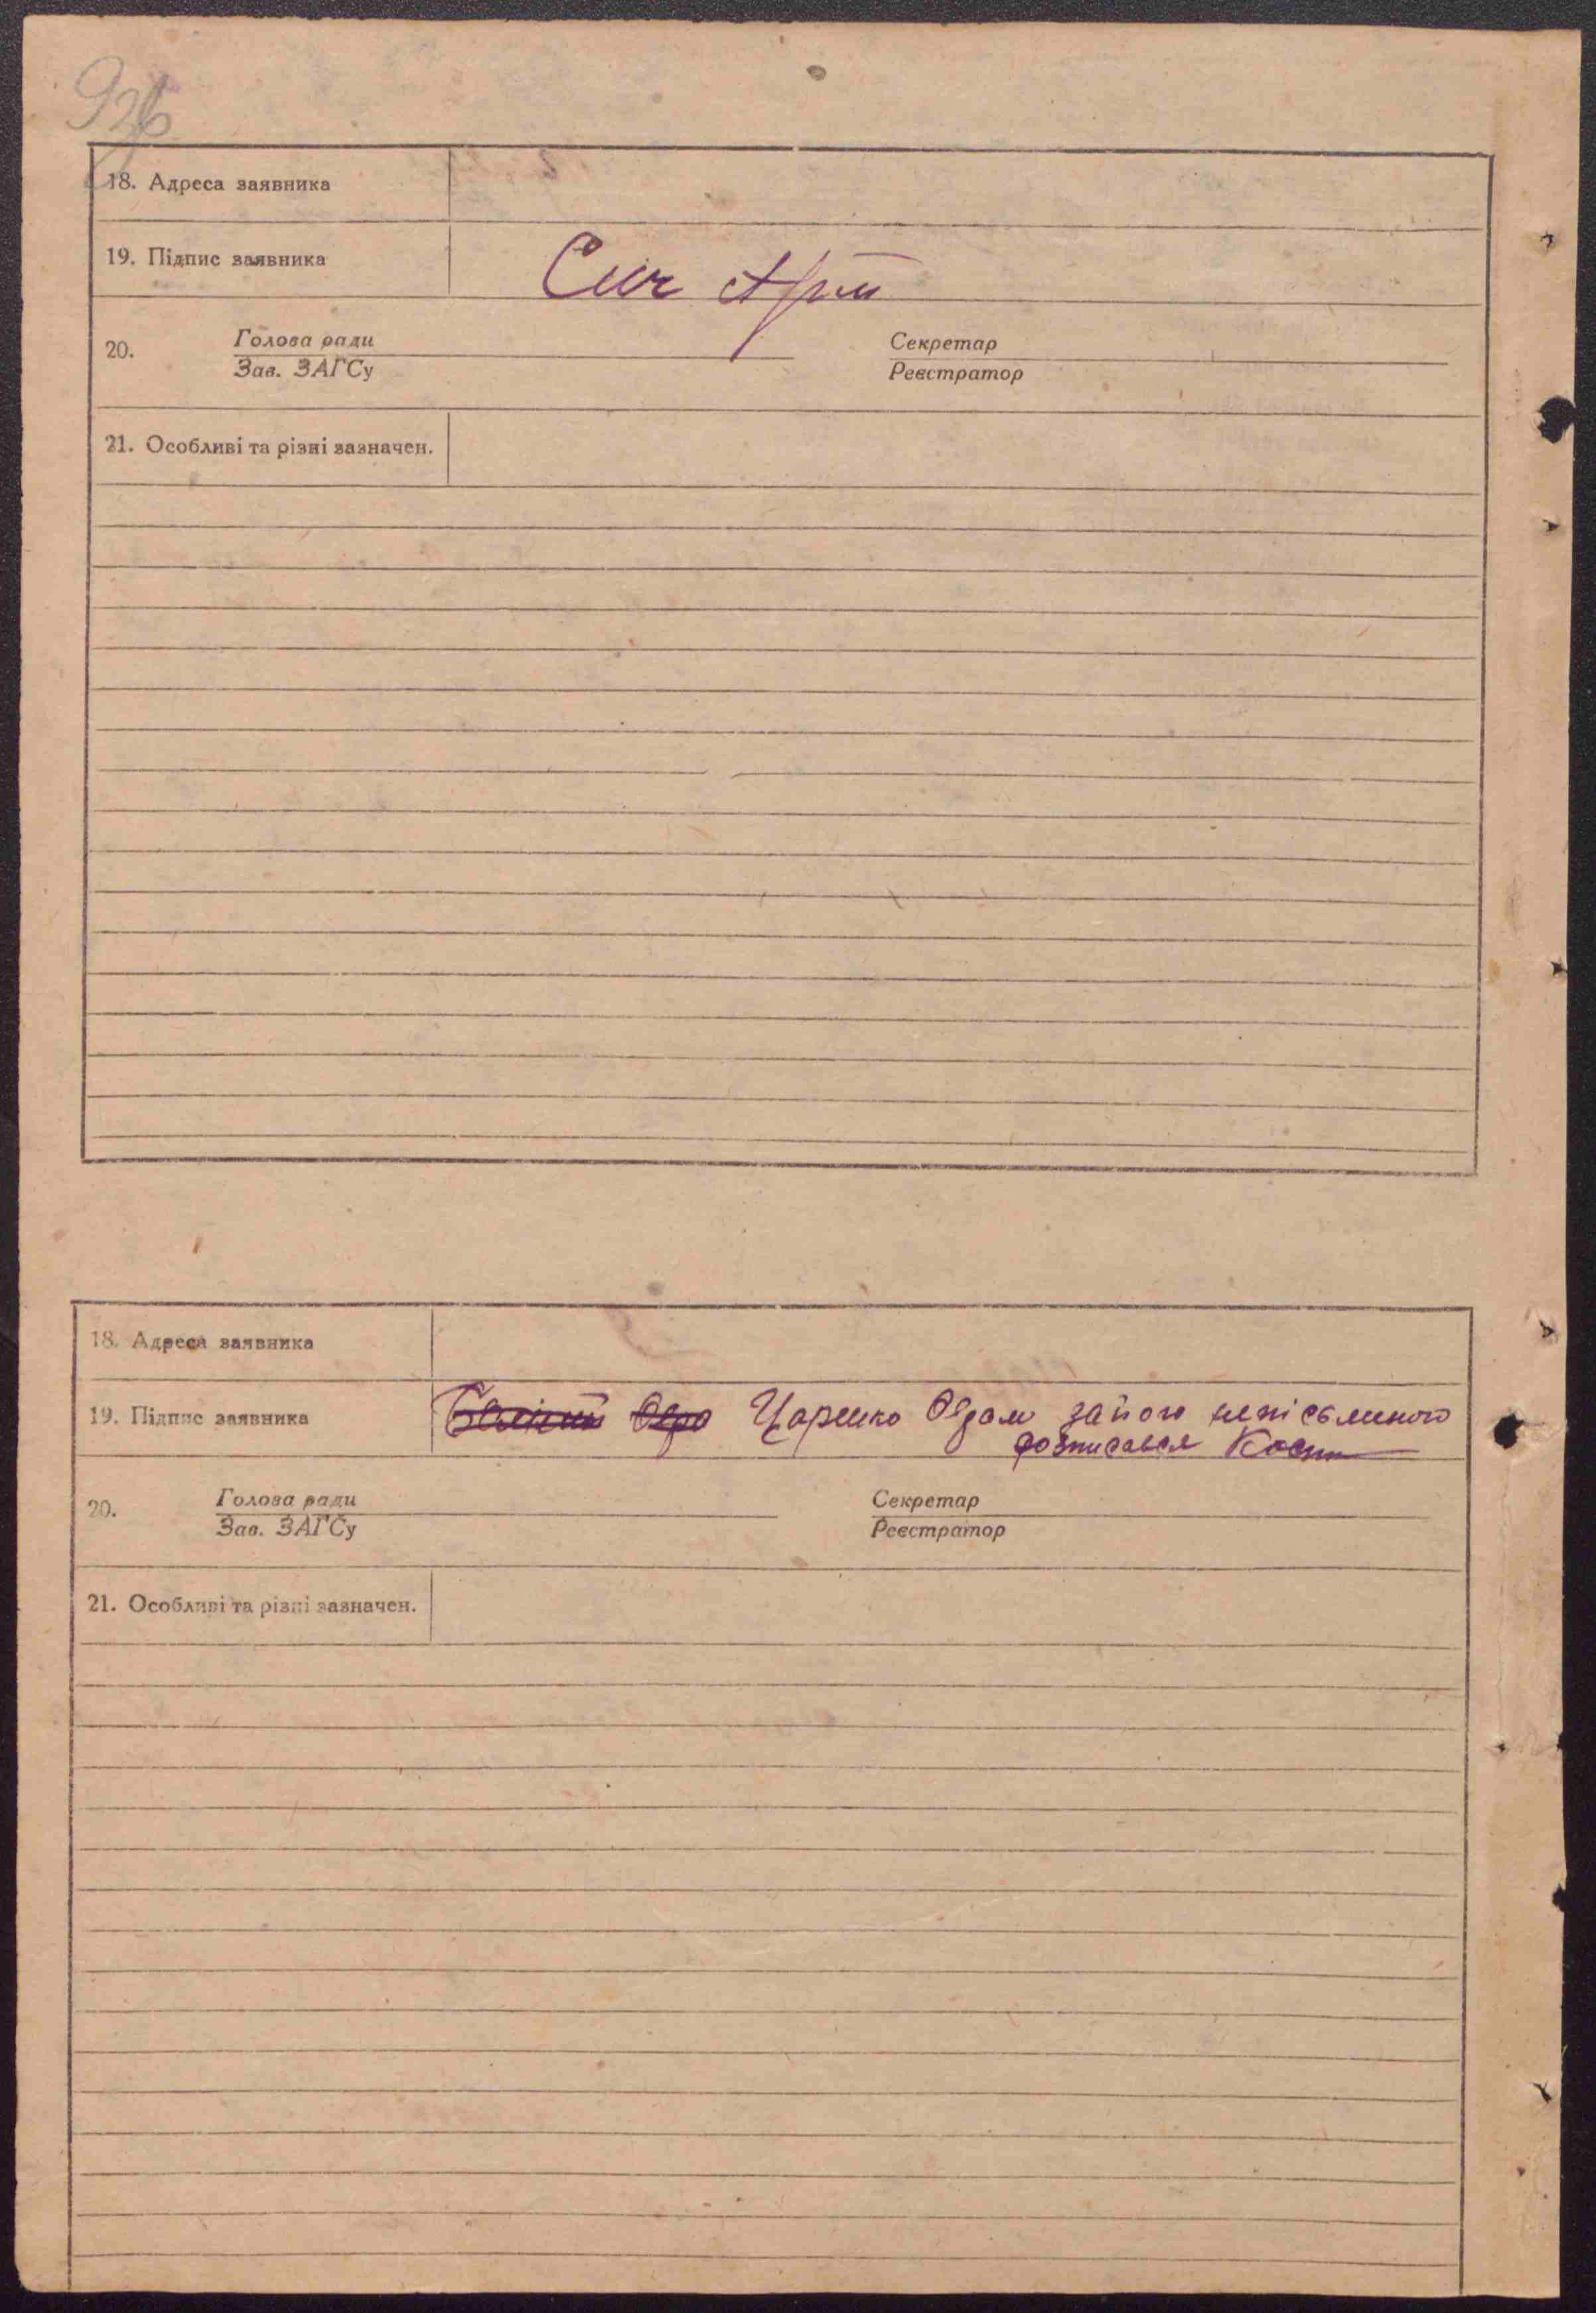 18. Адреса заявника
19. Підпис заявника Сич
20. Голова ради Секретар
Зав. ЗАГСу Реєстратор
21. Особливі та різні зазначен.
18. Адреса заявника
19. Підпис заявника Царенко Одам за його неписьменого
розписався
20. Голова ради Секретар
Зав. ЗАГСу Реєстратор
21. Особливі та різні зазначен.